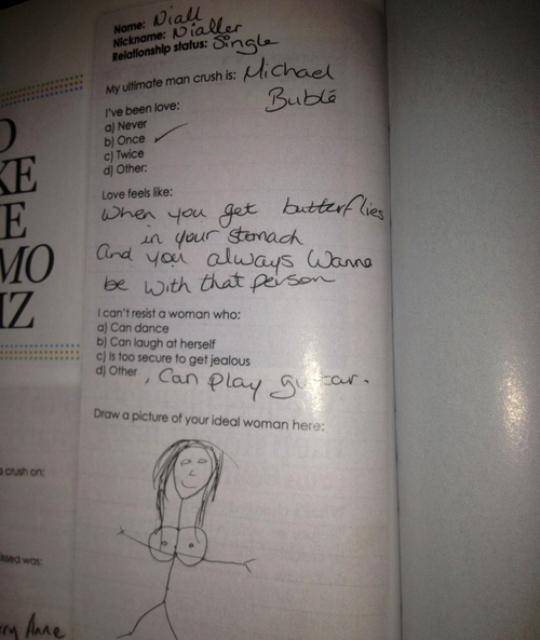 O
KE
E
MO
IZ
crush on:
was:
Anne
Name: Niall
Nickname: Nialler
Relationship status: Single
My ultimate man crush is: Michael
Bublé
I've been love:
a) Never
b) Once
c) Twice
d) Other:
Love feels like:
When you get butterflies
in your stomach
and you always wanna
be with that person
I can't resist a woman who:
a) Can dance
b) Can laugh at herself
c) Is too secure to get jealous
d) Other, Can play guitar.
Draw a picture of your ideal woman here: